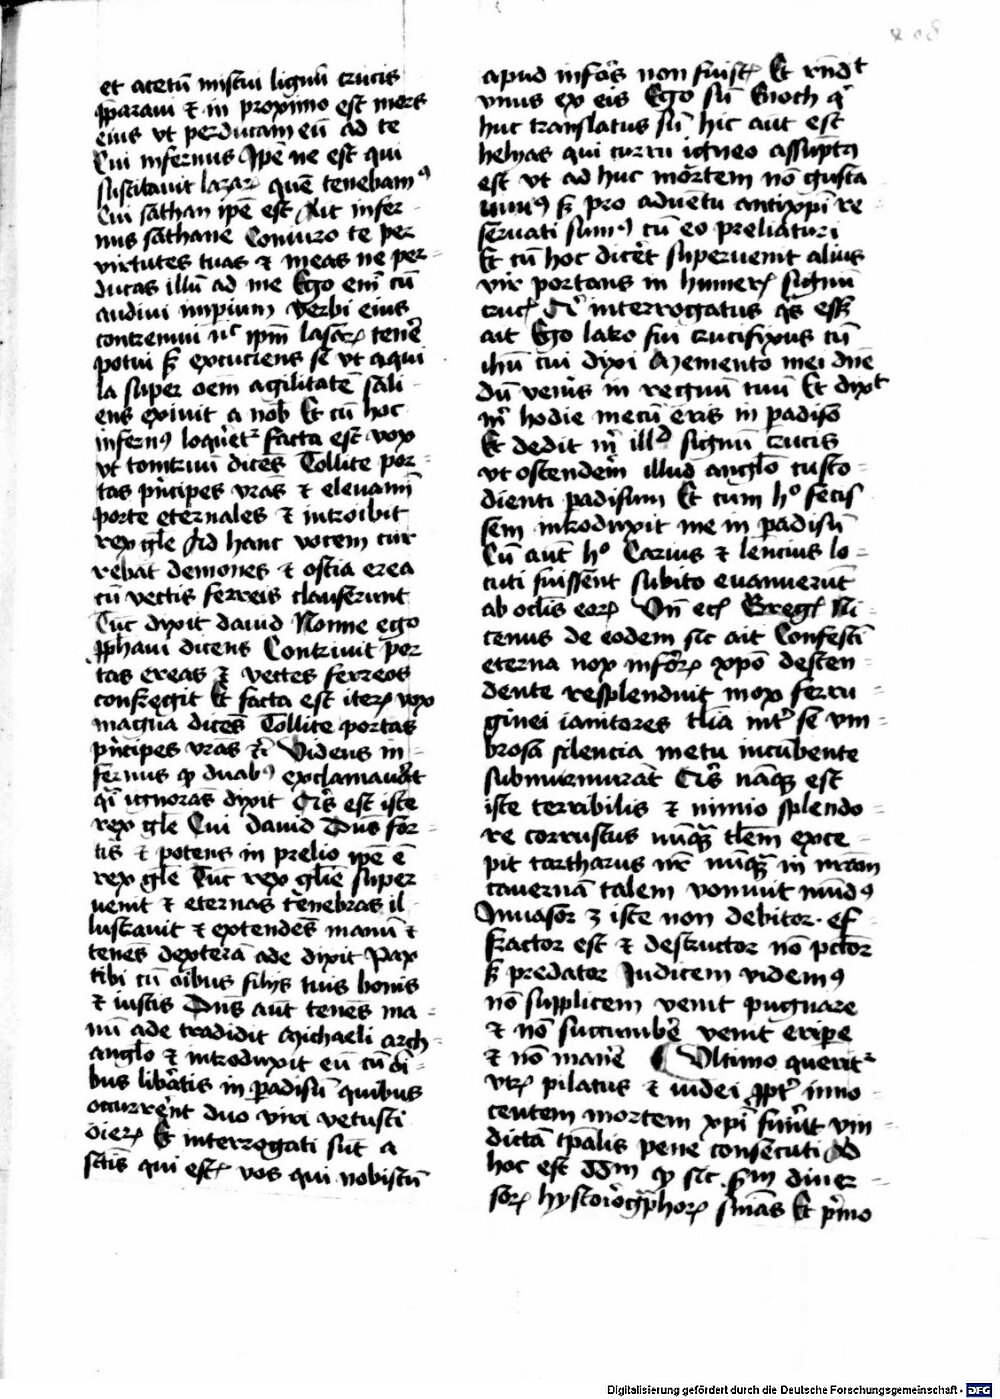 et acetū miscui lignū crucis
p̄paraui et in proximo est mors
eius vt perducam eū ad te
Cui infernus Ip̄e ne est qui
suscitauit lazarꝝ quē tenebamꝰ
Cui sathan ip̄e est Ait infer-
nus sathane Coniuro te per
virtutes tuas et meas ne per-
ducas illū ad me Ego em̄ cū
audiui imperium verbi eius
contremui nec ip̄m lasarꝝ tenēr
potui sꝫ excuciens se vt aqui
la super oēm agilitatē sali-
ens exiuit a nob̄ Et cū hoc
infernꝰ loq̄ret᷑ facta est vox
vt tonitrui dicēs Tollite por-
tas pⁱncipes vr̄as et eleuamī
porte eternales et introibit
rex gl̄e Ad hanc vocem cur
rebāt demones et ostia erea
cū vectis ferreis clauserunt
Tūc dixit dauid Nonne ego
ꝓph̄aui dicens Contriuit por
tas ereas et vectes ferreos
confregit Et facta est iterꝝ vox
magna dicēs Tollite portas
pⁱncipes vr̄as etc̄ Videns in-
fernus ꝙ duabꝰ exclamauer̄t
q̄i ignorās dixit Qⁱs est iste
rex gl̄e Cui dauid Dn̄s for-
tis et potens in prelio ip̄e ē
rex gl̄e Tūc rex gl̄ie super
uenit et eternas tenebras il-
lustrauit et extendēs manū et
tenēs dexterā ade dixit Pax
tibi cū oībus filijs tuis bonis
et iustis Dn̄s aūt tenēs ma-
nū ade tradidit Michaeli arch-
anglo et introduxit eū cū oī-
bus lib̄atis in p̲adisū quibus
occurrērt duo viri vetusti
dierꝝ Et interrogati sūt a
sc̄tis qui estꝭ vos qui nobiscū
apud inferos non fuistꝭ Et rn̄dt
vnus ex eis Ego sū Enoch qⁱ
huc translatus sū hic aūt est
helyas qui curru igneo assūptꝰ
est vt ad huc mortem nō gusta
uimꝰ sꝫ pro aduētu antixp̄i re-
seruati sumꝰ cū eo preliaturi
Et cū hoc dicēt superuenit alius
vir portans in humerꝭ signū
crucꝭ Qⁱ interrogatus qⁱs eēt
ait Ego latro fui crucifixus cū
ihū cui dixi Memento mei dn̄e
dū venis in regnū tuū Et dixt
mⁱ hodie mecū eris in p̲adiso
Et dedit mⁱ illd̄ signū crucis
vt ostenderem illud anglo custo-
dienti p̲adisum Et cum hº fecis
sem introduxit me in p̲adisū
Cū aūt hº Carius et lencius lo-
cuti fuissent subito euanuerūt
ab oclis eorꝝ Vn̄ ec̄ Gregꝰ Ni-
cenus de eodem sic ait Confestī
eterna nox inferorꝝ xpō descen-
dente resplenduit mox ferru-
ginei ianitores inter se vm-
brosa silencia metu incūbente
submurmurāt Qⁱs nāqꝫ est
iste terribilis et nimio splendo-
re corruscus nūqꝫ tl̄em exce-
pit tartharus nec nūqꝫ in nr̄am
cauernā talem vomuit mūdꝰ
Inuasor ꝫ iste non debitor ef-
fractor est et destructor nō pctōr
sꝫ predator Iudicem videmꝰ
nō supplicem venit pugnare
et nō succumbēr venit eripe
et nō manēr Vltimo querit᷑
vtrꝝ pilatus et iudei ꝓpt̄ inno-
centem mortem xp̄i fuer̄t vin-
dictā tp̄alis pene consecuti Ad
hoc est ꝙ sic scd̄m diuer-
sorꝝ hystoriogr̄phorꝝ sn̄ias Et pⁱmo
Digitalisierung gefördert durch die Deutsche Forschungsgemeinschaft - DFG